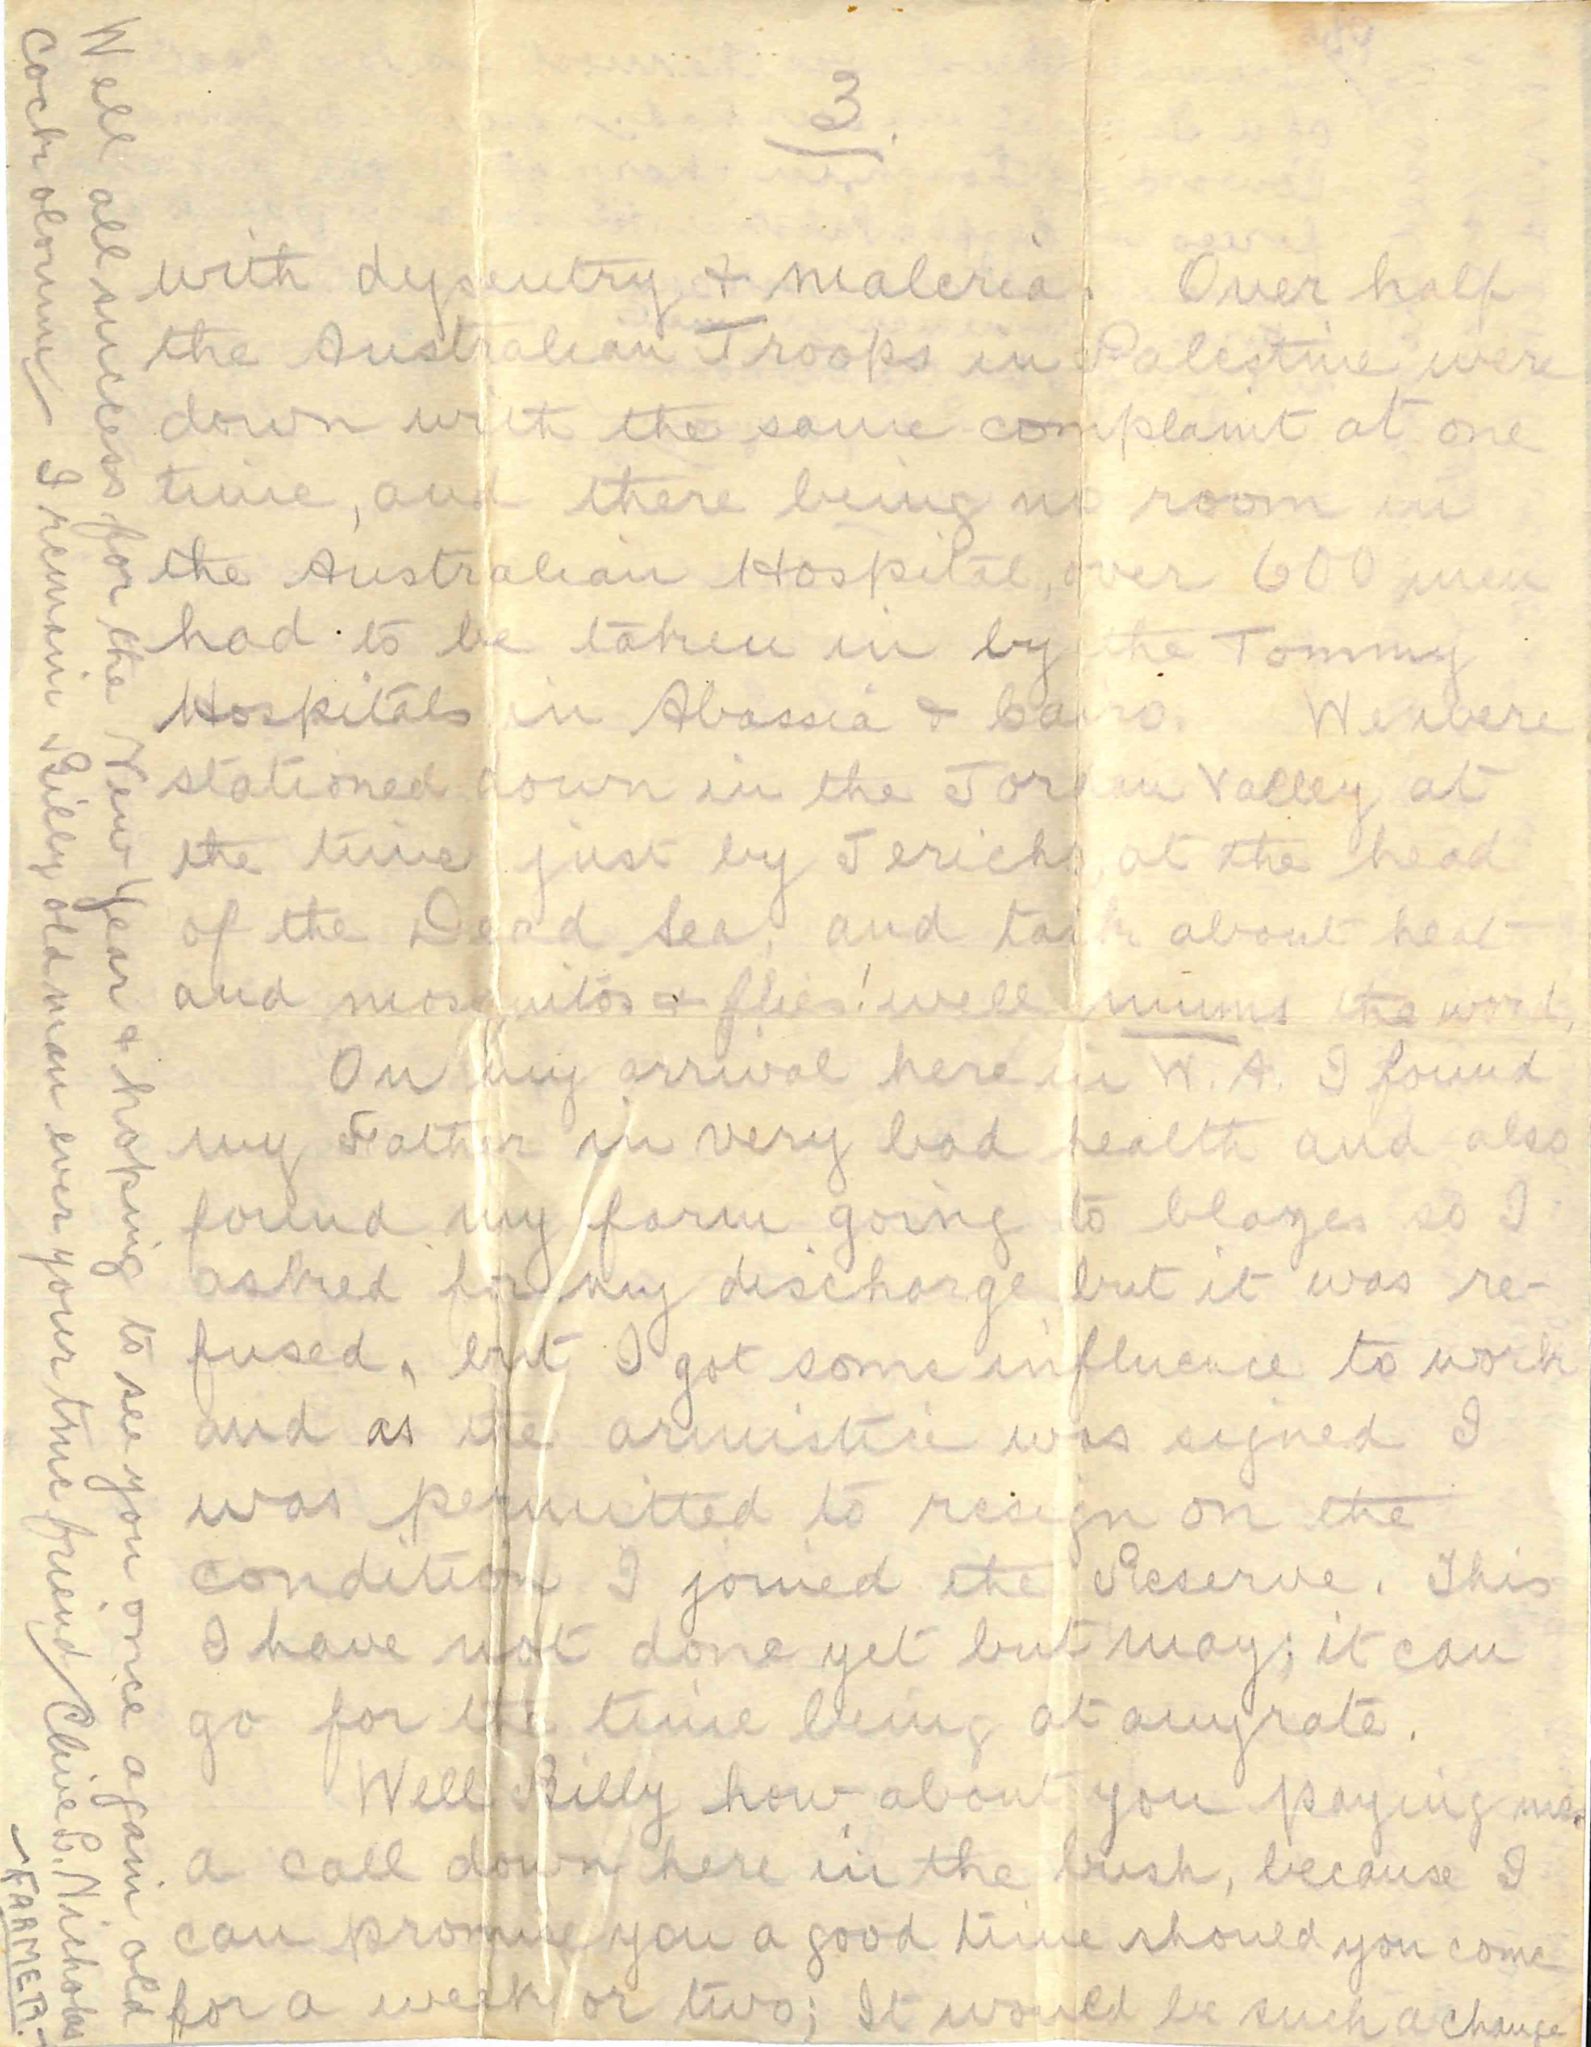 3.
with dysentry & maleria. Over half
the Australian Troops in Palestine were
down with the same complaint at one
time, and there being no room in
the Australian Hospital, over 600 men
had to be taken in by the Tommy
Hospitals in Abassia & Cairo. We were
stationed down in the Jordan Valley at
the time just by Jericho, at the head
of the Dead Sea, and talk about heat
and mosquitos & flies! well mums the word.
On my arrival here in W.A. I found
my Father in very bad health and also
found my farm going to blazes so I
asked for my discharge but it was re-
fused, but I got some influence to work
and as the armistice was signed I
was permitted to resign on the
condition I joined the Reserve. This
I have not done yet but may; it can
go for the time being at anyrate.
Well Billy how about you paying me
a call down here in the bush, because I
can promise you a good time should you come
for a week or two; It would be such a change
Well all success for the New Year & hoping to see you once again old
cockalourum I remain Billy old man ever your true friend Clive L. Nicholas
- FARMER. -